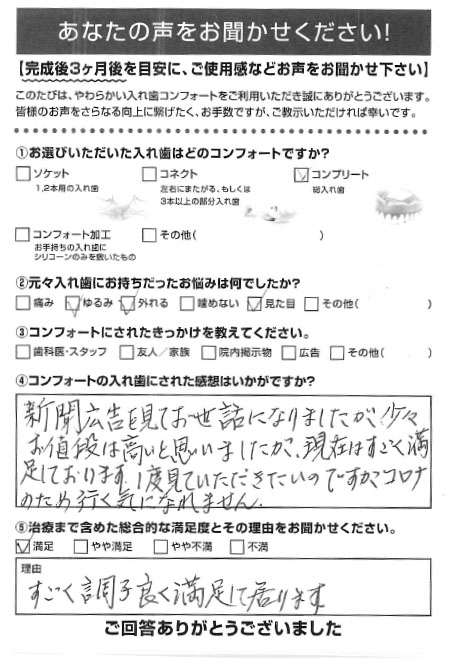 あなたの声をお聞かせください!
【完成後3ヶ月後を目安に、ご使用感などお声をお聞かせ下さい】
このたびは、やわらかい入れ歯コンフォートをご利用いただき誠にありがとうございます。
皆様のお声をさらなる向上に繋げたく、お手数ですが、ご教示いただければ幸いです。
①お選びいただいた入れ歯はどのコンフォートですか?
ソケット
1,2本用の入れ歯
コネクト
左右にまたがる、もしくは
3本以上の部分入れ歯
コンプリート
総入れ歯
コンフォート加工
お手持ちの入れ歯に
シリコーンのみを敷いたもの
その他( )
②元々入れ歯にお持ちだったお悩みは何でしたか?
痛み ゆるみ 外れる 噛めない 見た目 その他( )
③コンフォートにされたきっかけを教えてください。
歯科医・スタッフ 友人/家族 院内掲示物 広告 その他( )
④コンフォートの入れ歯にされた感想はいかがですか?
新聞広告を見てお世話になりましたが、少々
お値段は高いと思いましたが、現在はすごく満
足しております。1度見ていただきたいのですがコロナ
のため行く気になれません。
⑤治療まで含めた総合的な満足度とその理由をお聞かせください。
満足 やや満足 やや不満 不満
理由
すごく調子良く満足して居ります
ご回答ありがとうございました